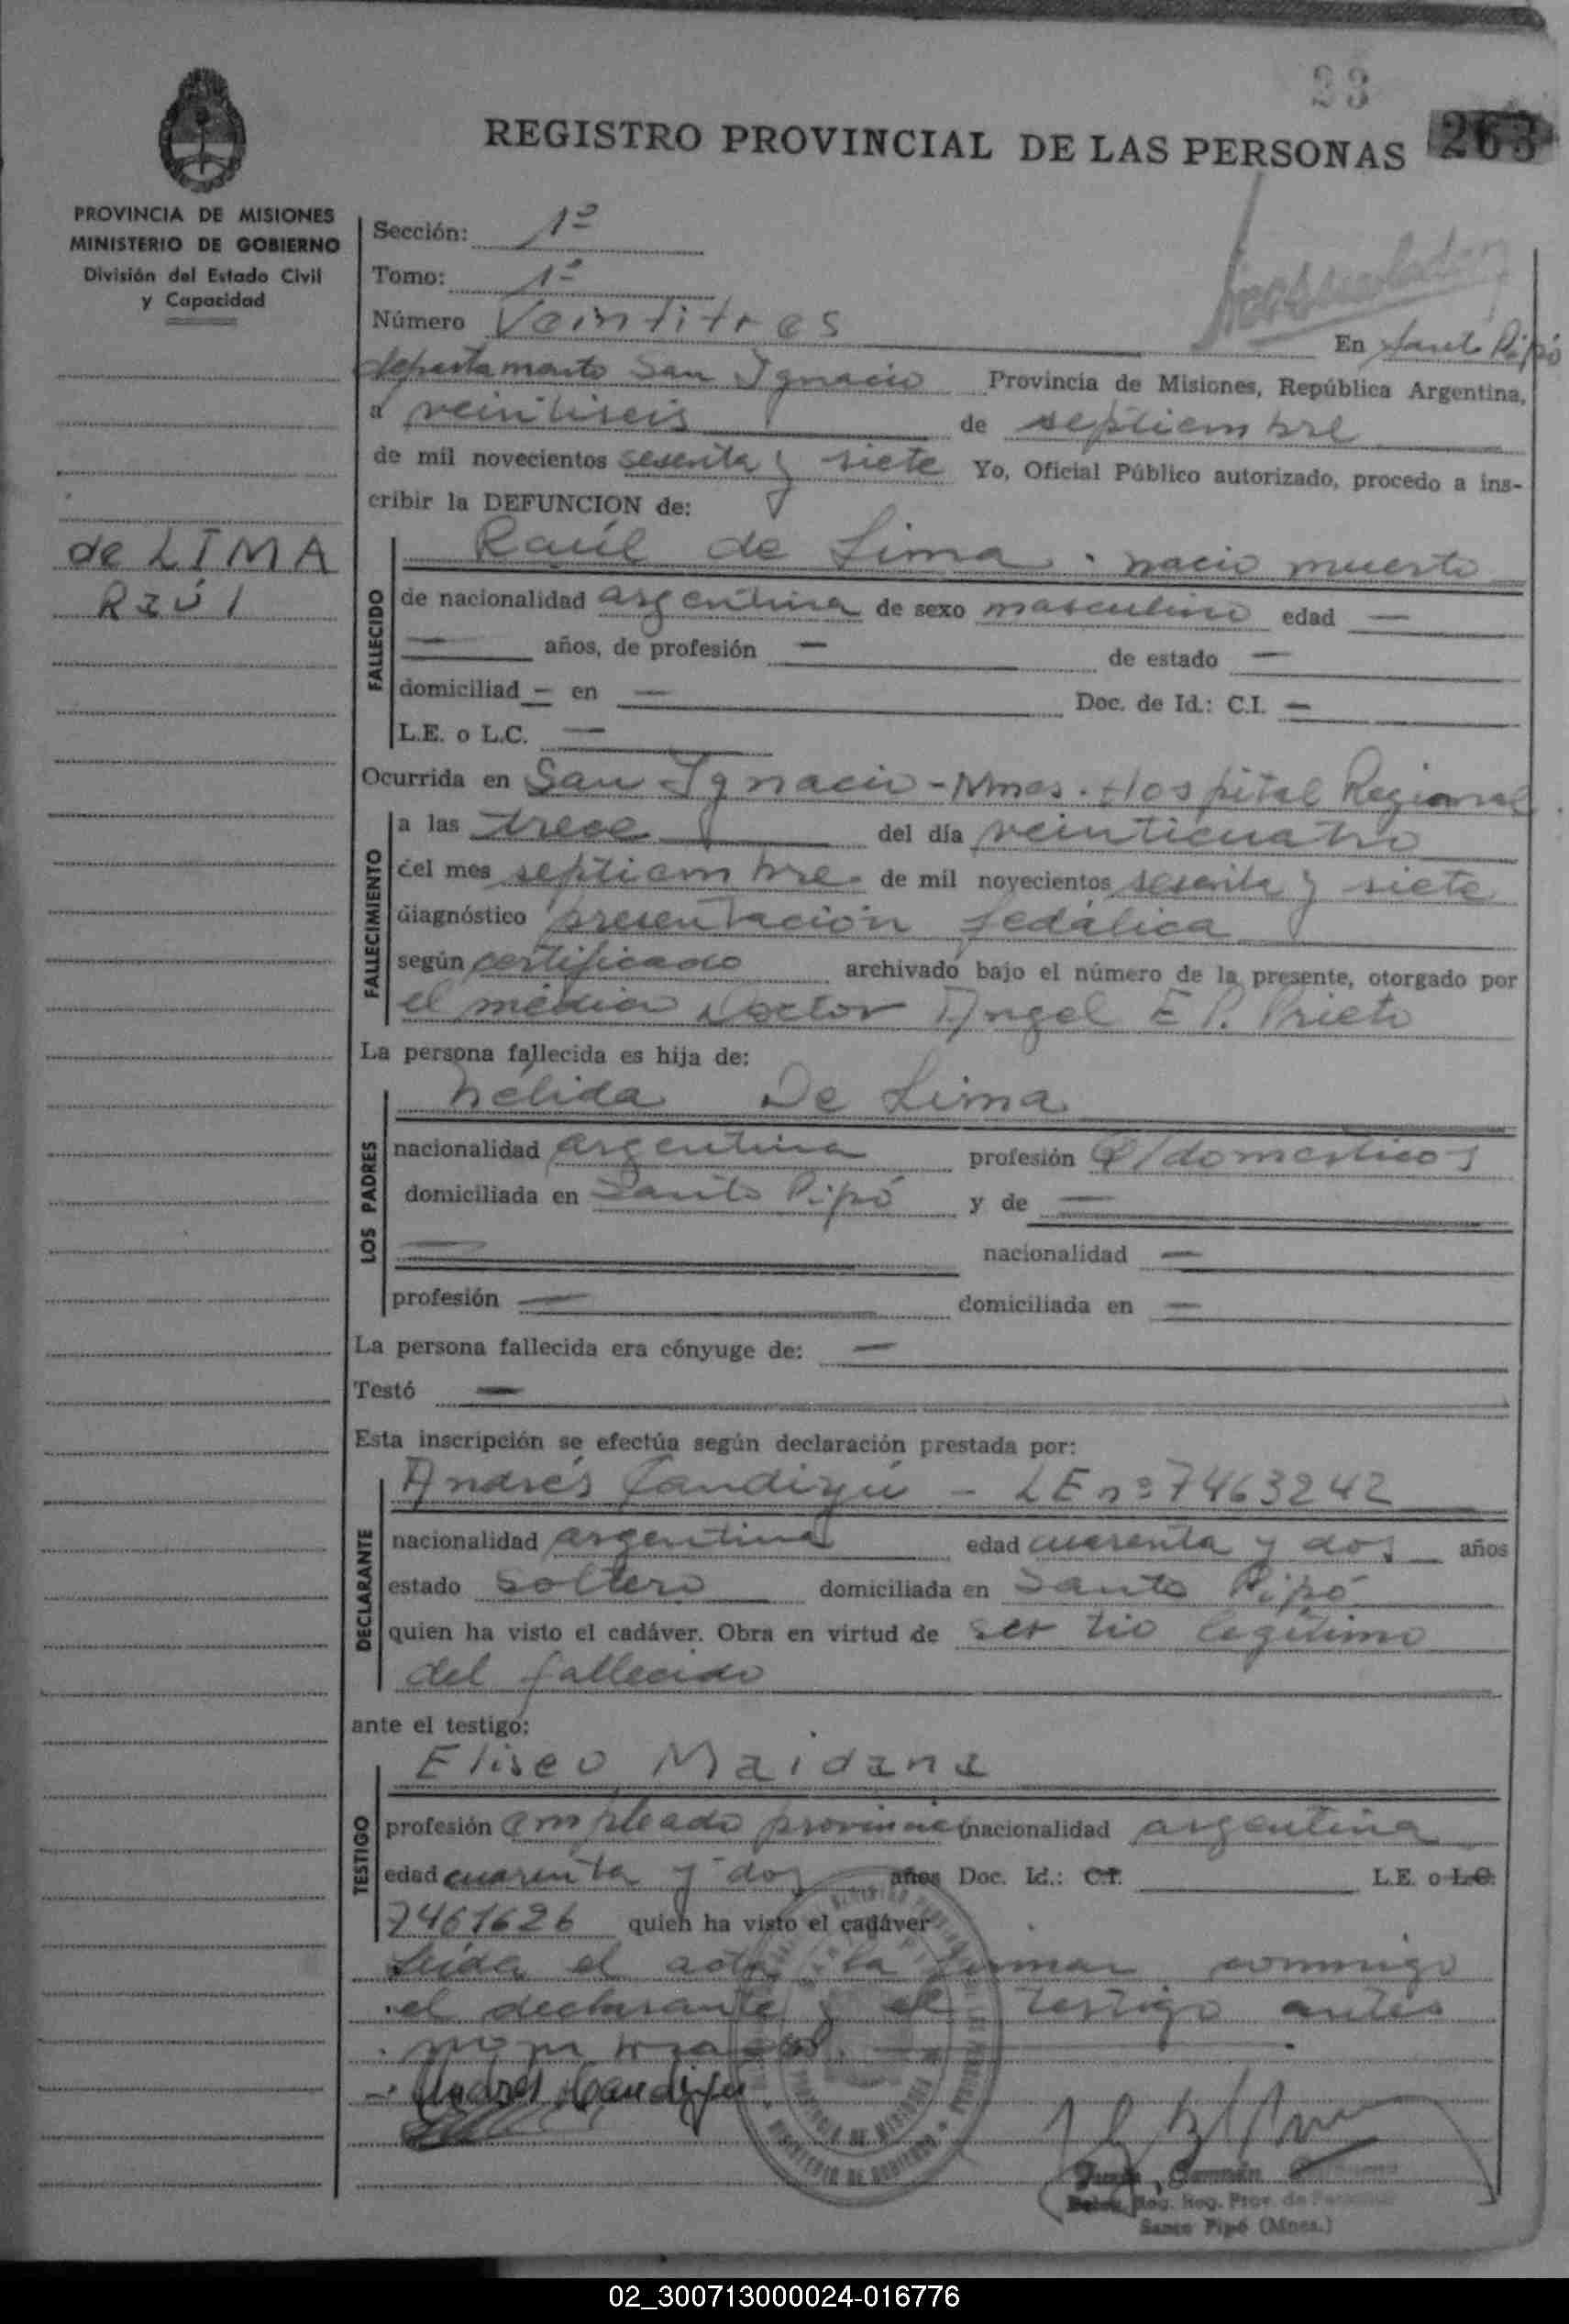 23
REGISTRO PROVINCIAL DE LAS PERSONAS 263
PROVINCIA DE MISIONES
MINISTERIO DE GOBIERNO
División del Estado Civil
y Capacidad
de LIMA
Raúl
Sección: 1º
Tomo: 1º
Número Veintitres
En Santo Pipó
departamento San Ignacio Provincia de Misiones, República Argentina,
a veintiseis de septiembre
de mil novecientos sesenta y siete Yo, Oficial Público autorizado, procedo a ins-
cribir la DEFUNCION de:
FALLECIDO
Raúl de Lima . nacio muerto
de nacionalidad argentina de sexo masculino edad —
— años, de profesión — de estado —
domiciliad — en — Doc. de Id.: C.I. —
L.E. o L.C. —
Ocurrida en San Ignacio - Mnes. Hospital Regional
FALLECIMIENTO
a las trece del día veinticuatro
del mes septiembre de mil novecientos sesenta y siete
diagnóstico presentación pedálica
según certificado archivado bajo el número de la presente, otorgado por
el médico Doctor Angel E P. Prieto
La persona fallecida es hija de:
LOS PADRES
Nélida De Lima
nacionalidad argentina profesión Q/domesticos
domiciliada en Santo Pipó y de —
— nacionalidad —
profesión — domiciliada en —
La persona fallecida era cónyuge de: —
Testó —
Esta inscripción se efectúa según declaración prestada por:
DECLARANTE
Andrés Candiyú - LE nº 7463242
nacionalidad argentina edad cuarenta y dos años
estado soltero domiciliada en Santo Pipó
quien ha visto el cadáver. Obra en virtud de ser tio legítimo
del fallecido
ante el testigo:
TESTIGO
Eliseo Maidana
profesión empleado provincial nacionalidad argentina
edad cuarenta y dos años Doc. Id.: C.I. L.E. o L.C.
7461626 quien ha visto el cadáver
Leida el acta la firman conmigo
el declarante y el testigo antes
nombrados.
Andres Candiyu
PROVINCIA DE MISIONES
MINISTERIO DE GOBIERNO
Reg. Prov. de
Santo Pipó (Mnes.)
02_300713000024-016776